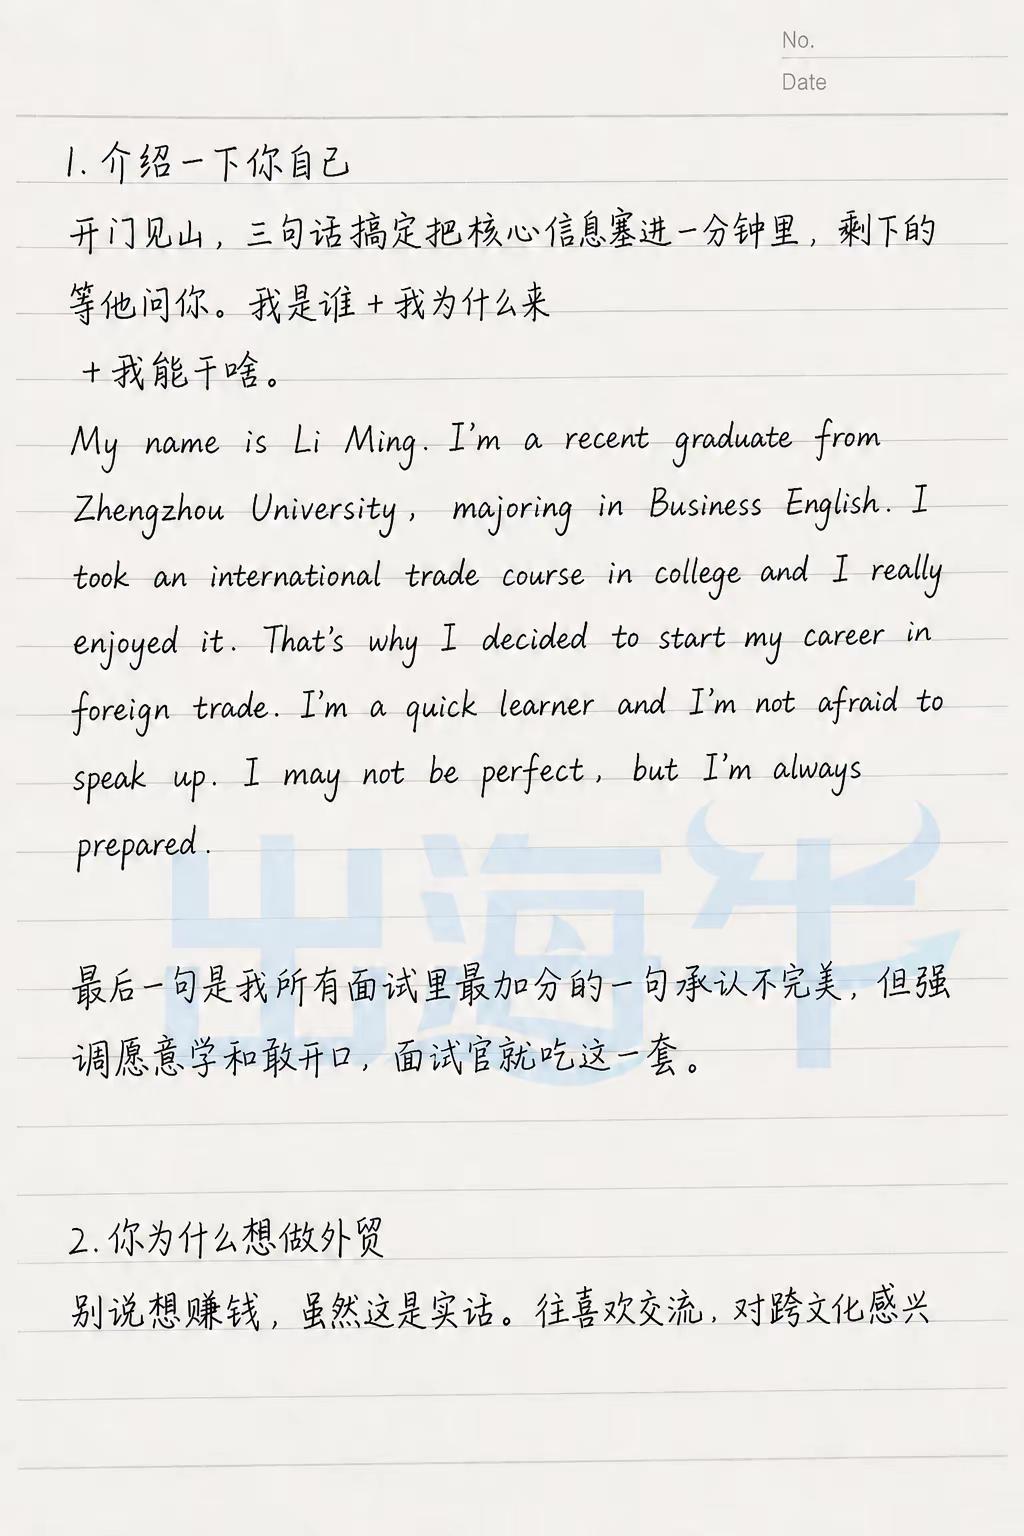 No.
Date
1. 介绍一下你自己
开门见山，三句话搞定把核心信息塞进一分钟里，剩下的
等他问你。我是谁 + 我为什么来
+ 我能干啥。
My name is Li Ming. I'm a recent graduate from
Zhengzhou University, majoring in Business English. I
took an international trade course in college and I really
enjoyed it. That's why I decided to start my career in
foreign trade. I'm a quick learner and I'm not afraid to
speak up. I may not be perfect, but I'm always
prepared.
出海牛
最后一句是我所有面试里最加分的一句承认不完美，但强
调愿意学和敢开口，面试官就吃这一套。
2. 你为什么想做外贸
别说想赚钱，虽然这是实话。往喜欢交流，对跨文化感兴